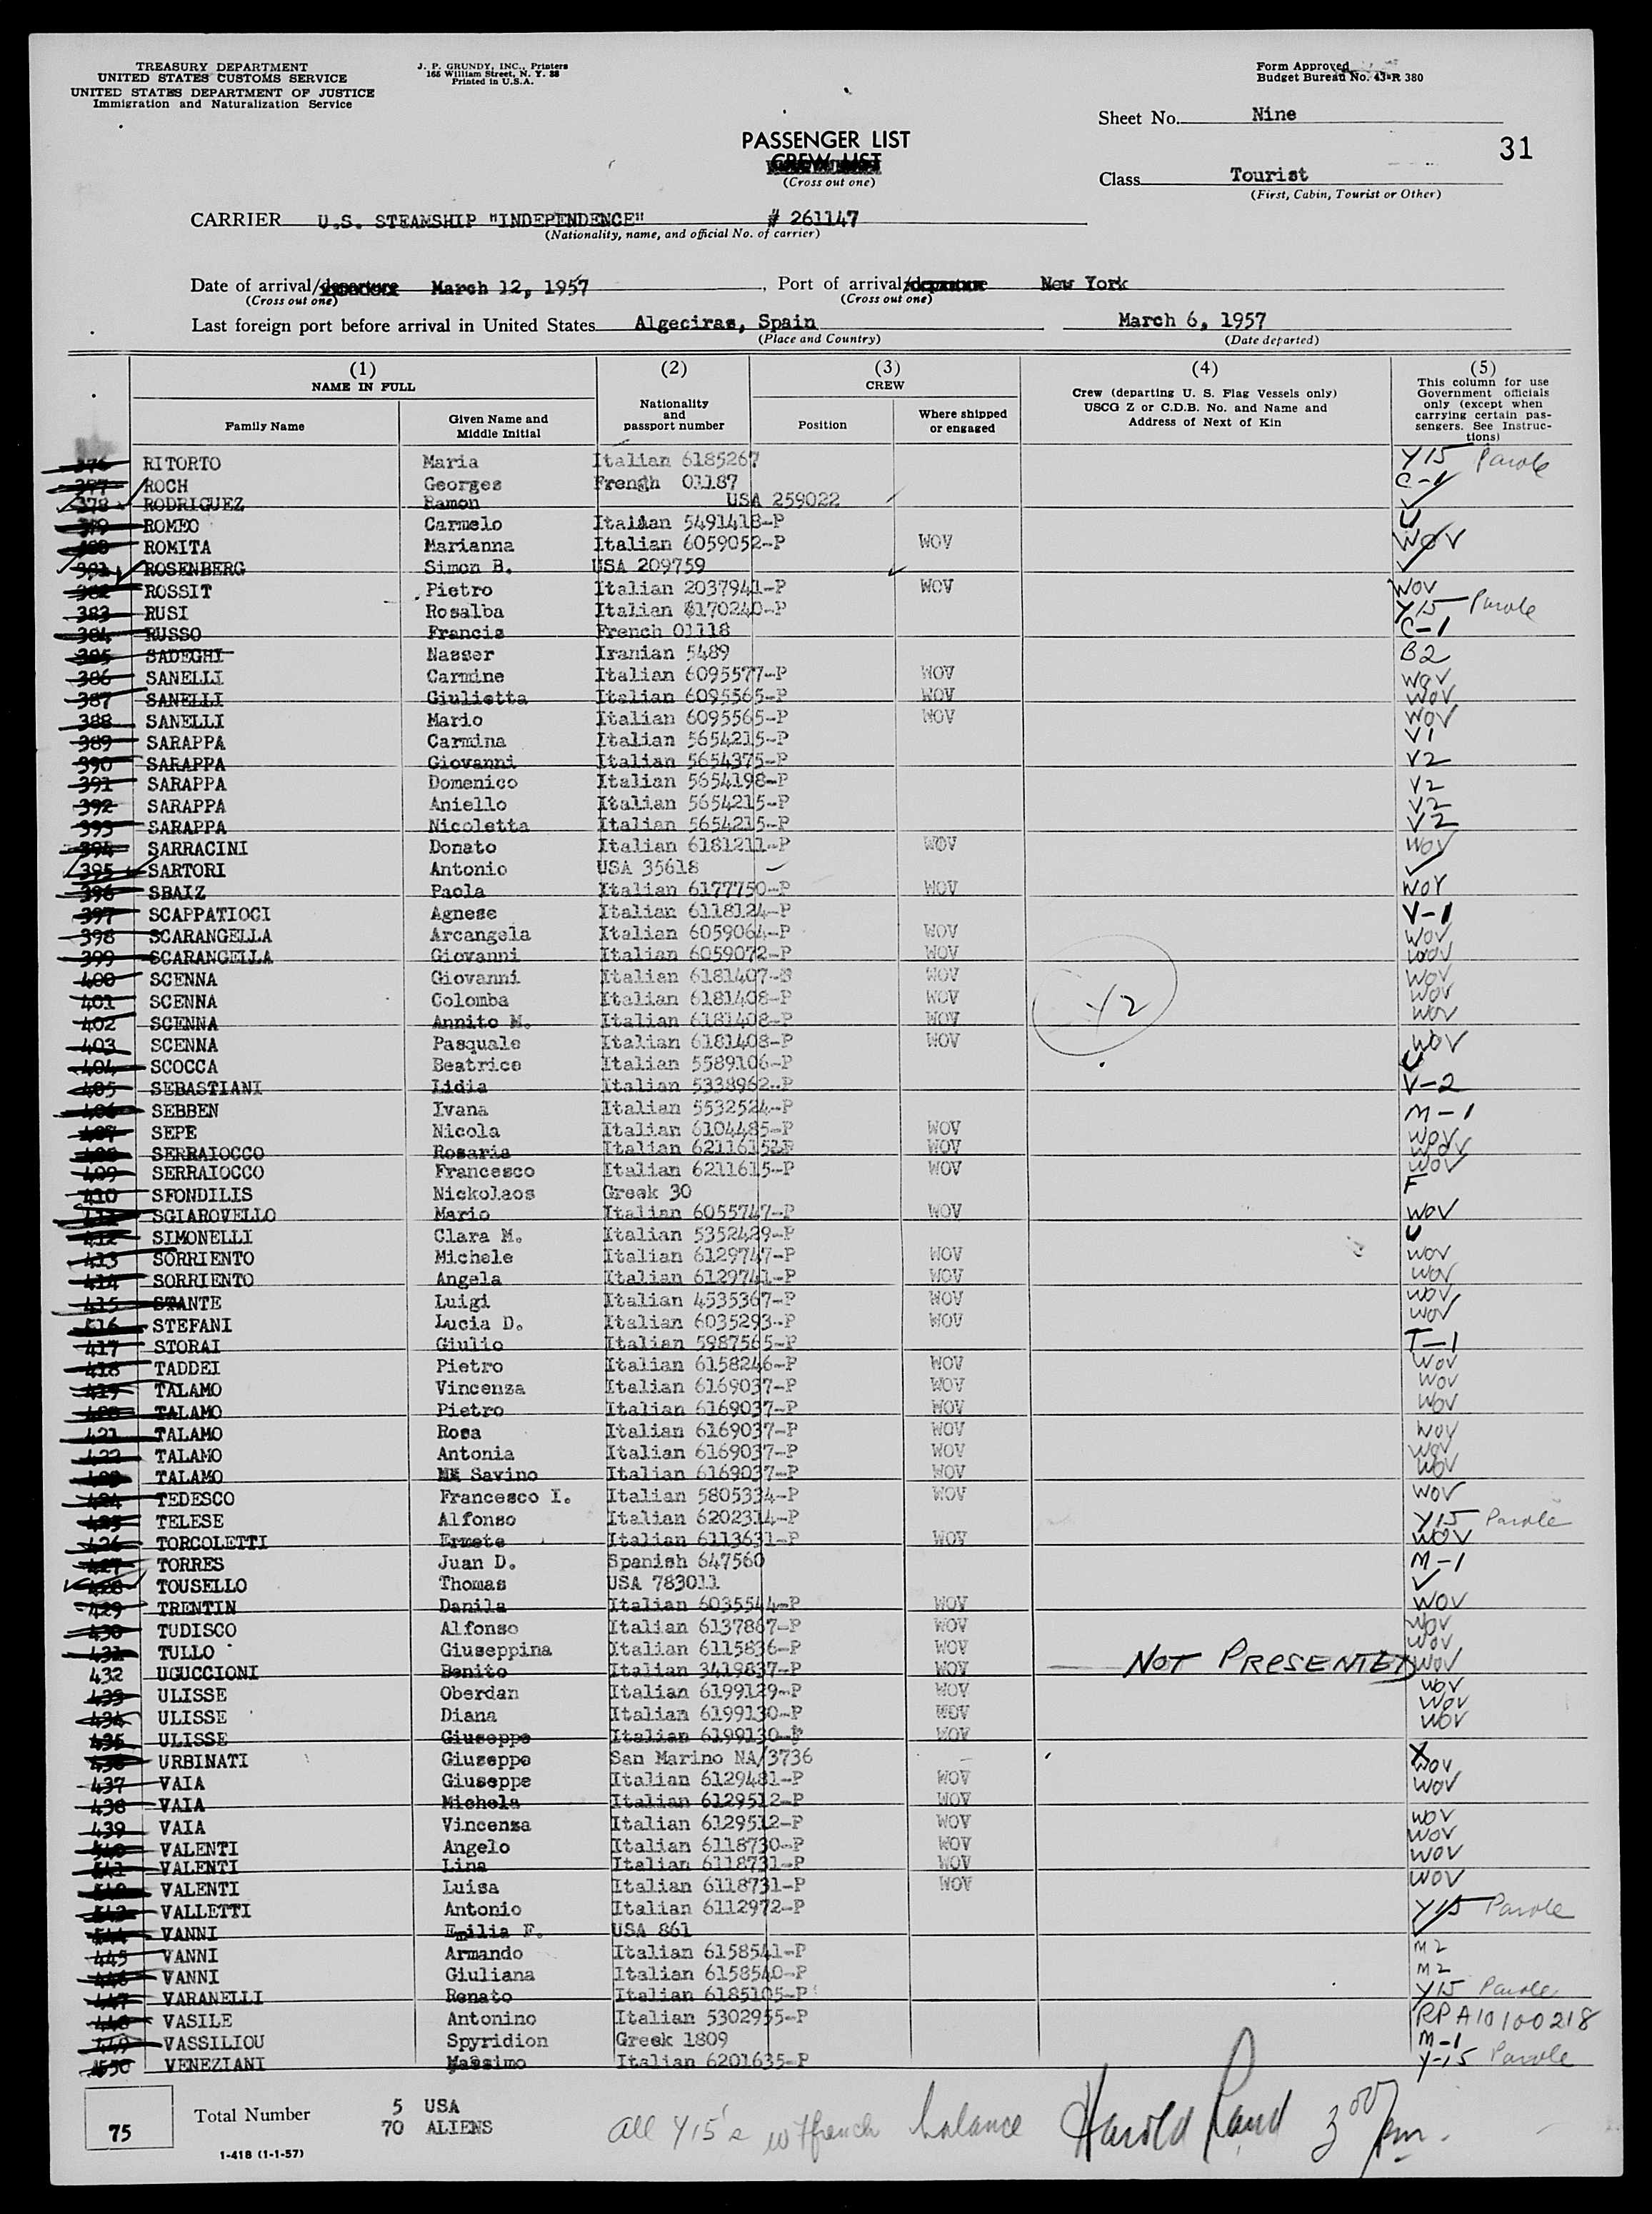 TREASURY DEPARTMENT
UNITED STATES CUSTOMS SERVICE
UNITED STATES DEPARTMENT OF JUSTICE
Immigration and Naturalization Service
J. P. GRUNDY, INC., Printers
165 William Street, N. Y. 38
Printed in U.S.A.
Form Approved
Budget Bureau No. 43-R 380
Sheet No. Nine
31
PASSENGER LIST
CREW LIST
(Cross out one)
Class Tourist
(First, Cabin, Tourist or Other)
CARRIER U.S. STEAMSHIP "INDEPENDENCE" # 261147
(Nationality, name, and official No. of carrier)
Date of arrival/departure March 12, 1957, Port of arrival/departure New York
(Cross out one) (Cross out one)
Last foreign port before arrival in United States Algeciras, Spain March 6, 1957
(Place and Country) (Date departed)
(1) NAME IN FULL
Family Name
Given Name and Middle Initial
(2) Nationality and passport number
(3) CREW
Position
Where shipped or engaged
(4) Crew (departing U. S. Flag Vessels only) USCG Z or C.D.B. No. and Name and Address of Next of Kin
(5) This column for use Government officials only (except when carrying certain passengers. See Instructions)
376 RITORTO Maria Italian 6185267 Y15 Parole
377 ROCH Georges Frengh 01187 C-1
378 RODRIGUEZ Ramon USA 259022
379 ROMEO Carmelo Italian 5491418-P U
380 ROMITA Marianna Italian 6059052-P WOV WOV
381 ROSENBERG Simon B. USA 209759
382 ROSSIT Pietro Italian 2037941-P WOV WOV
383 RUSI Rosalba Italian 6170240-P Y15 Parole
384 RUSSO Francis French 01118 C-1
385 SADEGHI Nasser Iranian 5489 B2
386 SANELLI Carmine Italian 6095577-P WOV WOV
387 SANELLI Giulietta Italian 6095565-P WOV WOV
388 SANELLI Mario Italian 6095565-P WOV WOV
389 SARAPPA Carmina Italian 5654215-P V1
390 SARAPPA Giovanni Italian 5654375-P V2
391 SARAPPA Domenico Italian 5654198-P V2
392 SARAPPA Aniello Italian 5654215-P V2
393 SARAPPA Nicoletta Italian 5654215-P V2
394 SARRACINI Donato Italian 6181211-P WOV WOV
395 SARTORI Antonio USA 35618
396 SBAIZ Paola Italian 6177750-P WOV WOV
397 SCAPPATIOCI Agnese Italian 6118124-P V-1
398 SCARANGELLA Arcangela Italian 6059064-P WOV WOV
399 SCARANGELLA Giovanni Italian 6059072-P WOV WOV
400 SCENNA Giovanni Italian 6181407-P WOV WOV
401 SCENNA Colomba Italian 6181408-P WOV WOV
402 SCENNA Annito M. Italian 6181408-P WOV WOV
403 SCENNA Pasquale Italian 6181408-P WOV WOV
404 SCOCCA Beatrice Italian 5589106-P U
405 SEBASTIANI Lidia Italian 5338962-P V-2
406 SEBBEN Ivana Italian 5532524-P M-1
407 SEPE Nicola Italian 6104485-P WOV WOV
408 SERRAIOCCO Rosaria Italian 6211615-P WOV WOV
409 SERRAIOCCO Francesco Italian 6211615-P WOV WOV
410 SFONDILIS Nickolaos Greek 30 F
411 SGIAROVELLO Mario Italian 6055747-P WOV WOV
412 SIMONELLI Clara M. Italian 5352429-P U
413 SORRIENTO Michele Italian 6129747-P WOV WOV
414 SORRIENTO Angela Italian 6129741-P WOV WOV
415 STANTE Luigi Italian 4535367-P WOV WOV
416 STEFANI Lucia D. Italian 6035293-P WOV WOV
417 STORAI Giulio Italian 5987565-P T-1
418 TADDEI Pietro Italian 6158246-P WOV WOV
419 TALAMO Vincenza Italian 6169037-P WOV WOV
420 TALAMO Pietro Italian 6169037-P WOV WOV
421 TALAMO Rosa Italian 6169037-P WOV WOV
422 TALAMO Antonia Italian 6169037-P WOV WOV
423 TALAMO Savino Italian 6169037-P WOV WOV
424 TEDESCO Francesco I. Italian 5805334-P WOV WOV
425 TELESE Alfonso Italian 6202314-P Y15 Parole
426 TORCOLETTI Ermete Italian 6113631-P WOV WOV
427 TORRES Juan D. Spanish 647560 M-1
428 TOUSELLO Thomas USA 783011
429 TRENTIN Danila Italian 6035544-P WOV WOV
430 TUDISCO Alfonso Italian 6137867-P WOV WOV
431 TULLO Giuseppina Italian 6115836-P WOV WOV
432 UGUCCIONI Benito Italian 3419837-P WOV NOT PRESENTED WOV
433 ULISSE Oberdan Italian 6199129-P WOV WOV
434 ULISSE Diana Italian 6199130-P WOV WOV
435 ULISSE Giuseppe Italian 6199130-P WOV WOV
436 URBINATI Giuseppe San Marino NA/3736 X
437 VAIA Giuseppe Italian 6129481-P WOV WOV
438 VAIA Michela Italian 6129512-P WOV WOV
439 VAIA Vincenza Italian 6129512-P WOV WOV
440 VALENTI Angelo Italian 6118730-P WOV WOV
441 VALENTI Lina Italian 6118731-P WOV WOV
442 VALENTI Luisa Italian 6118731-P WOV WOV
443 VALLETTI Antonio Italian 6112972-P Y15 Parole
444 VANNI Emilia F. USA 861
445 VANNI Armando Italian 6158541-P M2
446 VANNI Giuliana Italian 6158540-P M2
447 VARANELLI Renato Italian 6185105-P Y15 Parole
448 VASILE Antonino Italian 5302955-P RPA10100218
449 VASSILIOU Spyridion Greek 1809 M-1
450 VENEZIANI Massimo Italian 6201635-P Y-15 Parole
75 Total Number 5 USA
70 ALIENS
All Y15's balance Harold 3 00 pm.
I-418 (1-1-57)